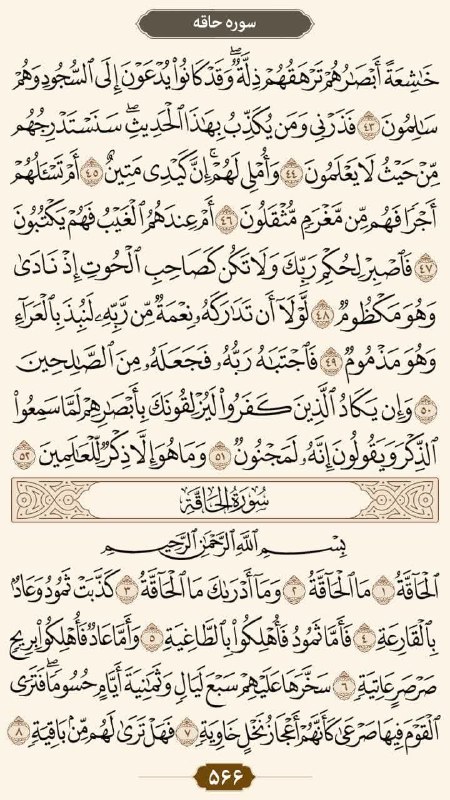 سوره حاقه
خَـٰشِعَةً أَبْصَـٰرُهُمْ تَرْهَقُهُمْ ذِلَّةٌۖ وَقَدْ كَانُوا۟ يُدْعَوْنَ إِلَى ٱلسُّجُودِ وَهُمْ
سَـٰلِمُونَ ٤٣ فَذَرْنِى وَمَن يُكَذِّبُ بِهَـٰذَا ٱلْحَدِيثِۖ سَنَسْتَدْرِجُهُم
مِّنْ حَيْثُ لَا يَعْلَمُونَ ٤٤ وَأُمْلِى لَهُمْۚ إِنَّ كَيْدِى مَتِينٌ ٤٥ أَمْ تَسْـَٔلُهُمْ
أَجْرًا فَهُم مِّن مَّغْرَمٍ مُّثْقَلُونَ ٤٦ أَمْ عِندَهُمُ ٱلْغَيْبُ فَهُمْ يَكْتُبُونَ
٤٧ فَٱصْبِرْ لِحُكْمِ رَبِّكَ وَلَا تَكُن كَصَاحِبِ ٱلْحُوتِ إِذْ نَادَىٰ
وَهُوَ مَكْظُومٌ ٤٨ لَّوْلَآ أَن تَدَٰرَكَهُۥ نِعْمَةٌ مِّن رَّبِّهِۦ لَنُبِذَ بِٱلْعَرَآءِ
وَهُوَ مَذْمُومٌ ٤٩ فَٱجْتَبَـٰهُ رَبُّهُۥ فَجَعَلَهُۥ مِنَ ٱلصَّـٰلِحِينَ
٥٠ وَإِن يَكَادُ ٱلَّذِينَ كَفَرُوا۟ لَيُزْلِقُونَكَ بِأَبْصَـٰرِهِمْ لَمَّا سَمِعُوا۟
ٱلذِّكْرَ وَيَقُولُونَ إِنَّهُۥ لَمَجْنُونٌ ٥١ وَمَا هُوَ إِلَّا ذِكْرٌ لِّلْعَـٰلَمِينَ ٥٢
سُورَةُ الْحَاقَّةِ
بِسْمِ ٱللَّهِ ٱلرَّحْمَـٰنِ ٱلرَّحِيمِ
ٱلْحَآقَّةُ ١ مَا ٱلْحَآقَّةُ ٢ وَمَآ أَدْرَىٰكَ مَا ٱلْحَآقَّةُ ٣ كَذَّبَتْ ثَمُودُ وَعَادٌۢ
بِٱلْقَارِعَةِ ٤ فَأَمَّا ثَمُودُ فَأُهْلِكُوا۟ بِٱلطَّاغِيَةِ ٥ وَأَمَّا عَادٌ فَأُهْلِكُوا۟ بِرِيحٍ
صَرْصَرٍ عَاتِيَةٍ ٦ سَخَّرَهَا عَلَيْهِمْ سَبْعَ لَيَالٍ وَثَمَـٰنِيَةَ أَيَّامٍ حُسُومًاۖ فَتَرَى
ٱلْقَوْمَ فِيهَا صَرْعَىٰ كَأَنَّهُمْ أَعْجَازُ نَخْلٍ خَاوِيَةٍ ٧ فَهَلْ تَرَىٰ لَهُم مِّنۢ بَاقِيَةٍ ٨
۵۶۶